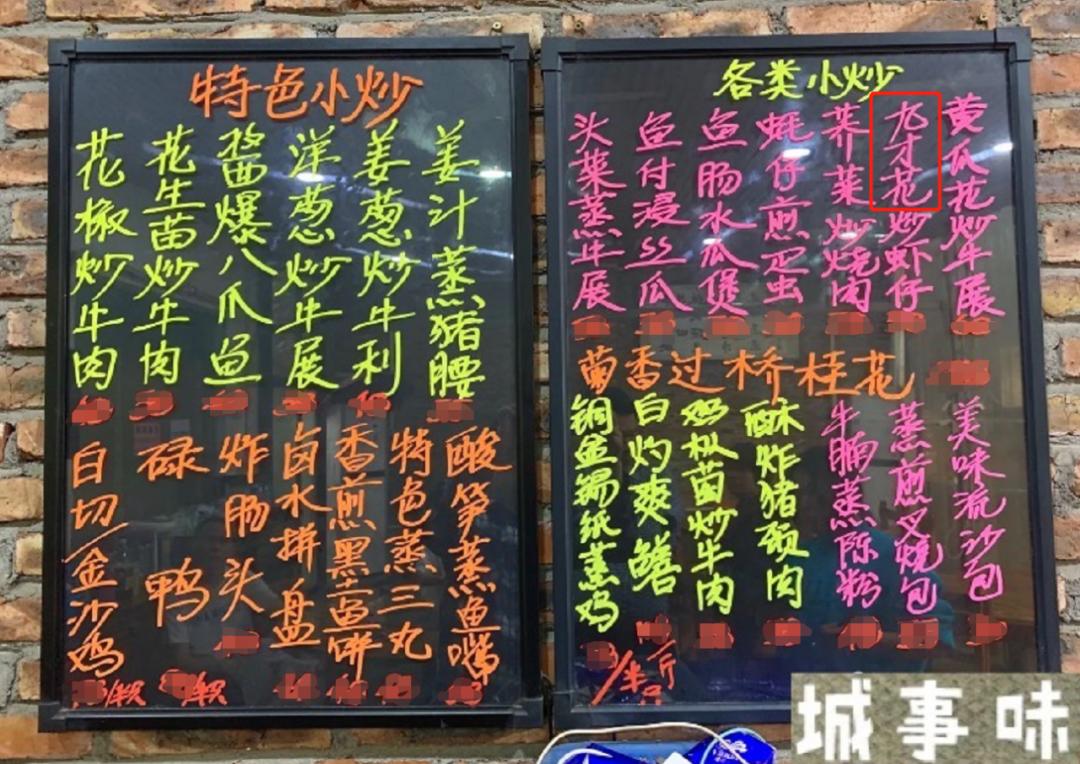 特色小炒
花椒炒牛肉
花生苗炒牛肉
酱爆八爪鱼
洋葱炒牛展
姜葱炒牛利
姜汁蒸猪腰
白切/金沙鸡
碌鸭
炸肠头
卤水拼盘
香煎黑鱼饼
特色蒸三丸
酸笋蒸鱼嘴
各类小炒
头菜蒸牛展
鱼付浸丝瓜
鱼肠水瓜煲
蚝仔煎蛋
荞菜炒烧肉
九才花炒虾仔
黄瓜花炒牛展
葡香过桥桂花
铜盆锡纸蒸鸡
/半斤
白灼爽鳝
鸡枞菌炒牛肉
酥炸猪颈肉
牛腩蒸陈粉
蒸煎叉烧包
美味流沙包
城事味